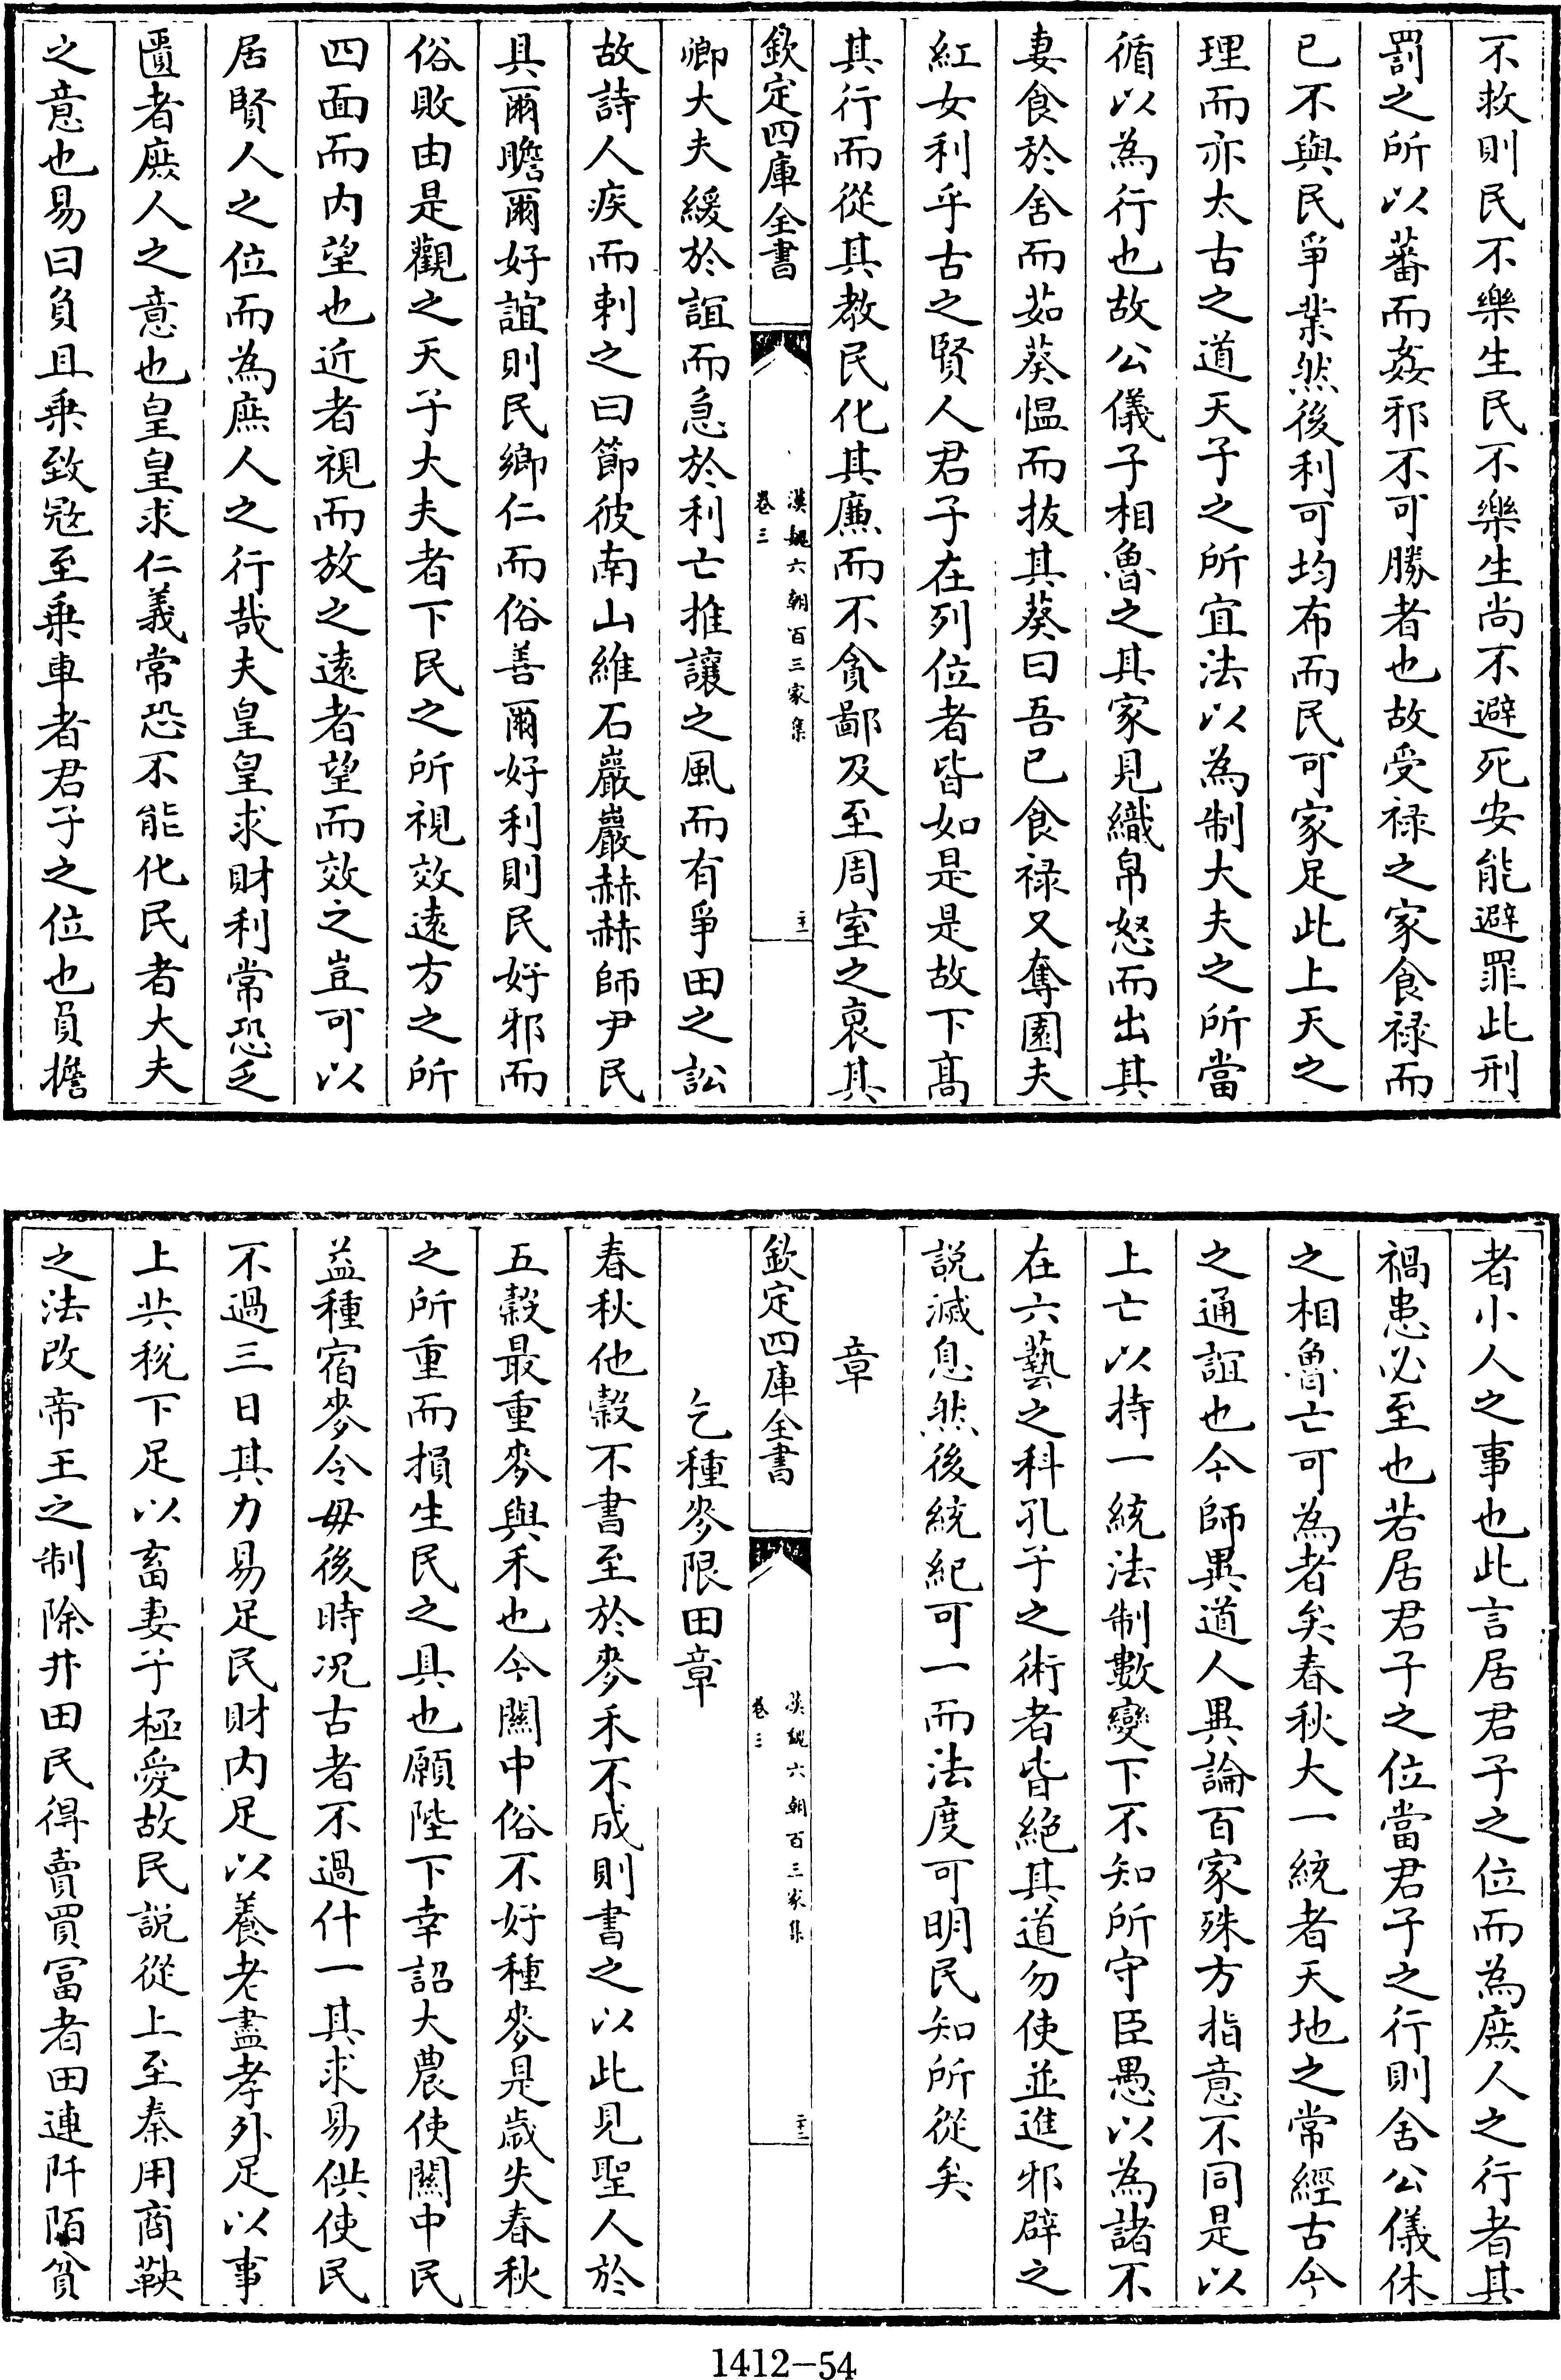 不救則民不樂生民不樂生尚不避死安能避罪此刑
罰之所以蕃而姦邪不可勝者也故受祿之家食祿而
已不與民爭業然後利可均布而民可家足此上天之
理而亦太古之道天子之所宜法以為制大夫之所當
循以為行也故公儀子相魯之其家見織帛怒而出其
妻食於舍而茹葵愠而抜其葵曰吾已食祿又奪園夫
紅女利乎古之賢人君子在列位者皆如是是故下髙
其行而從其教民化其廉而不貪鄙及至周室之衰其
欽定四庫全書
漢魏六朝百三家集
卷三
二十一
卿大夫緩於誼而急於利亡推讓之風而有爭田之訟
故詩人疾而刺之曰節彼南山維石巖巖赫赫師尹民
具爾瞻爾好誼則民鄉仁而俗善爾好利則民好邪而
俗敗由是觀之天子大夫者下民之所視效遠方之所
四面而内望也近者視而放之遠者望而效之豈可以
居賢人之位而為庶人之行哉夫皇皇求財利常恐乏
匱者庶人之意也皇皇求仁義常恐不能化民者大夫
之意也易曰負且乗致宼至乗車者君子之位也負擔
者小人之事也此言居君子之位而為庶人之行者其
禍患必至也若居君子之位當君子之行則舍公儀休
之相魯亡可為者矣春秋大一統者天地之常經古今
之通誼也今師異道人異論百家殊方指意不同是以
上亡以持一統法制數變下不知所守臣愚以為諸不
在六藝之科孔子之術者皆絕其道勿使並進邪辟之
説滅息然後統紀可一而法度可明民知所從矣
章
欽定四庫全書
漢魏六朝百三家集
卷三
二十二
乞種麥限田章
春秋他榖不書至於麥禾不成則書之以此見聖人於
五榖最重麥與禾也今關中俗不好種麥是歲失春秋
之所重而損生民之具也願陛下幸詔大農使關中民
益種宿麥令毋後時况古者不過什一其求易供使民
不過三日其力易足民財内足以養老盡孝外足以事
上共稅下足以畜妻子極愛故民說從上至秦用商鞅
之法改帝王之制除井田民得賣買富者田連阡陌貧
1412-54